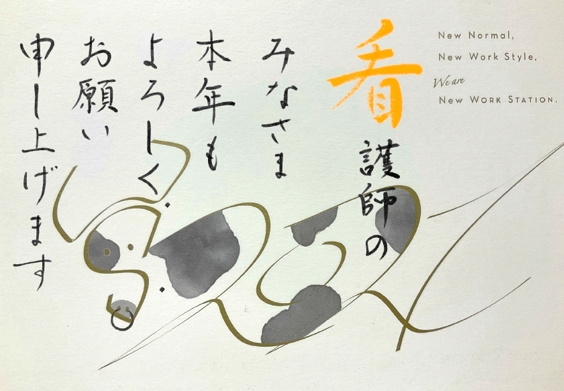 New Normal,
New Work Style,
We are
New Work Station.
看護師の
みなさま
本年も
よろしく
お願い
申し上げます